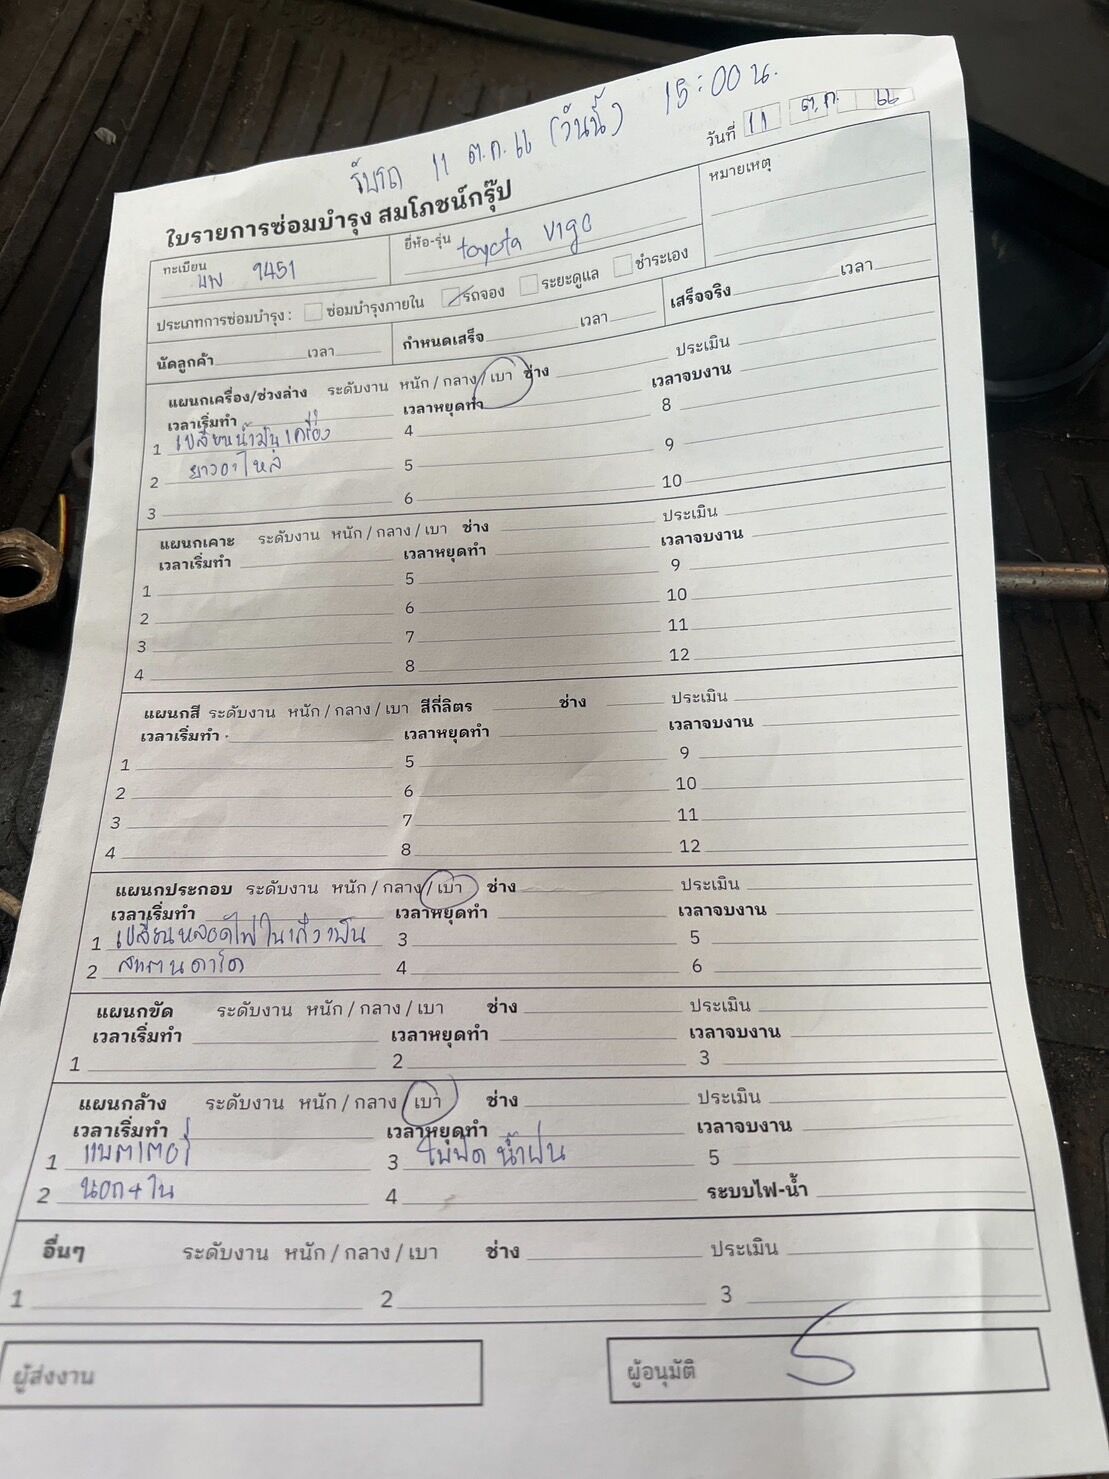 รับรถ 11 ต.ค. 66 (วันนี้) 15:00 น.
วันที่ 11 ต.ค. 66
ใบรายการซ่อมบำรุง สมโภชน์กรุ๊ป
ทะเบียน 9451 ยี่ห้อ-รุ่น toyota vigo หมายเหตุ
ประเภทการซ่อมบำรุง : ซ่อมบำรุงภายใน รถจอง ระยะดูแล ชำระเอง
นัดลูกค้า เวลา กำหนดเสร็จ เวลา เสร็จจริง เวลา
แผนกเครื่อง/ช่วงล่าง ระดับงาน หนัก / กลาง / เบา ช่าง ประเมิน
เวลาเริ่มทำ เวลาหยุดทำ เวลาจบงาน
1 เปลี่ยนน้ำมันเครื่อง 4 8
2 ยางอาไหล่ 5 9
3 6 10
แผนกเคาะ ระดับงาน หนัก / กลาง / เบา ช่าง ประเมิน
เวลาเริ่มทำ เวลาหยุดทำ เวลาจบงาน
1 5 9
2 6 10
3 7 11
4 8 12
แผนกสี ระดับงาน หนัก / กลาง / เบา สีกี่ลิตร ช่าง ประเมิน
เวลาเริ่มทำ เวลาหยุดทำ เวลาจบงาน
1 5 9
2 6 10
3 7 11
4 8 12
แผนกประกอบ ระดับงาน หนัก / กลาง / เบา ช่าง ประเมิน
เวลาเริ่มทำ เวลาหยุดทำ เวลาจบงาน
1 เปลี่ยนหลอดไฟในเก๋งเป็น 3 5
2 สแตนดาร์ด 4 6
แผนกขัด ระดับงาน หนัก / กลาง / เบา ช่าง ประเมิน
เวลาเริ่มทำ เวลาหยุดทำ เวลาจบงาน
1 2 3
แผนกล้าง ระดับงาน หนัก / กลาง / เบา ช่าง ประเมิน
เวลาเริ่มทำ เวลาหยุดทำ เวลาจบงาน
1 แบตเตอรี่ 3 ใบปัดน้ำฝน 5
2 นอก+ใน 4 ระบบไฟ-น้ำ
อื่นๆ ระดับงาน หนัก / กลาง / เบา ช่าง ประเมิน
1 2 3
ผู้ส่งงาน ผู้อนุมัติ